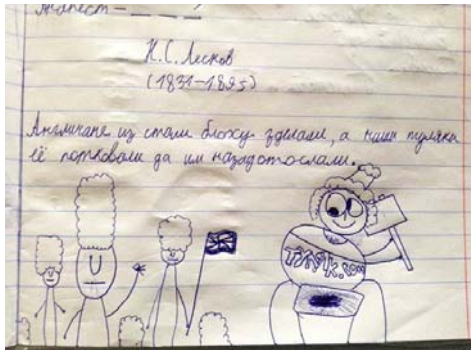 Анапест – _ _ _ ́
Н.С. Лесков
(1831–1895)
Англичане из стали блоху зделали, а наши туляки
её потковали да им назадотослали.